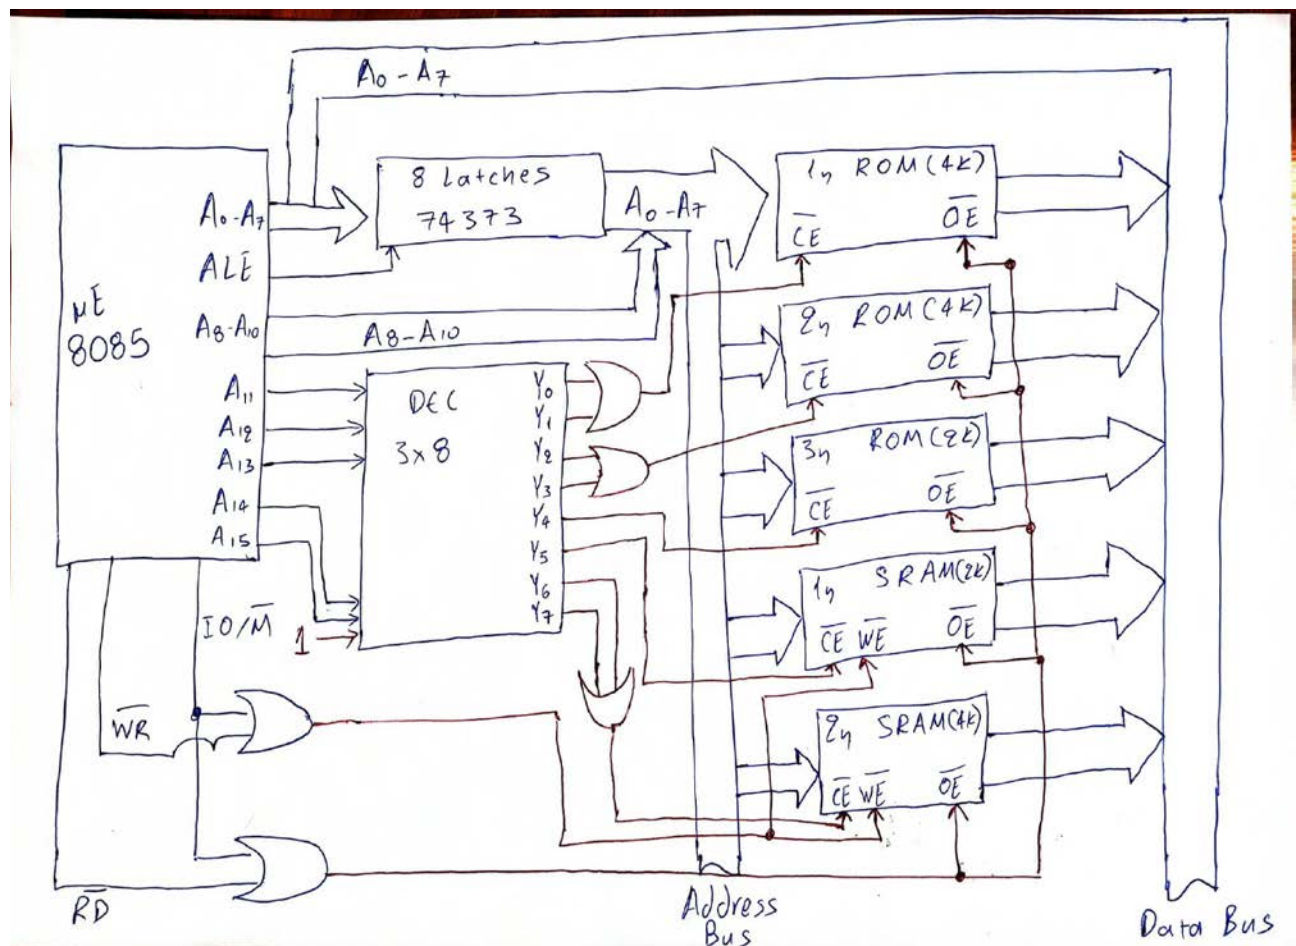 A0 - A7
με
8085
A0-A7
ALE̅
A8-A10
A11
A12
A13
A14
A15
IO/M̅
W̅R̅
R̅D̅
8 Latches
74373
A0-A7
A8-A10
DEC
3x8
1
Y0
Y1
Y2
Y3
Y4
Y5
Y6
Y7
1η ROM(4K)
C̅E̅ O̅E̅
2η ROM(4K)
C̅E̅ O̅E̅
3η ROM(2K)
C̅E̅ O̅E̅
1η SRAM(2K)
C̅E̅ W̅E̅ O̅E̅
2η SRAM(4K)
C̅E̅ W̅E̅ O̅E̅
Address
Bus
Data Bus